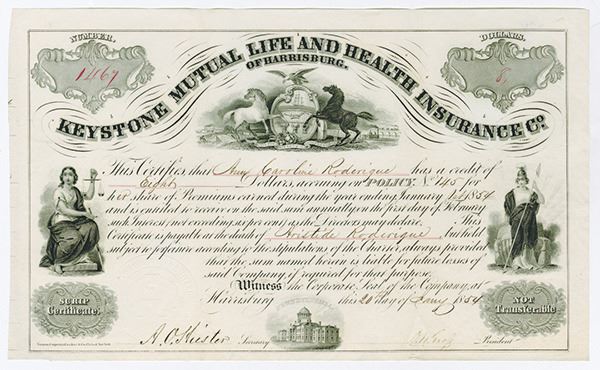 NUMBER.
1467
DOLLARS.
8
KEYSTONE MUTUAL LIFE AND HEALTH INSURANCE Co.
OF HARRISBURG.
This Certifies, that Ann Caroline Roderigue has a credit of
Eight Dollars, accruing on POLICY No. 145 for
her share of Premiums earned during the year ending January 1st 1854
and is entitled to receive on the said sum annually on the first day of February
such Interest, not exceeding six per cent, as the Directors may declare. This
Certificate is payable at the death of Aristide Roderigue but held
subject to forfeiture according to the stipulations of the Charter, always provided
that the sum named herein is liable for future losses of
said Company if required for that purpose.
Witness the Corporate Seal of the Company, at
Harrisburg this 20th day of Jany 1854
SCRIP
Certificate.
NOT
Transferable
A.O. Hiester Secretary
President